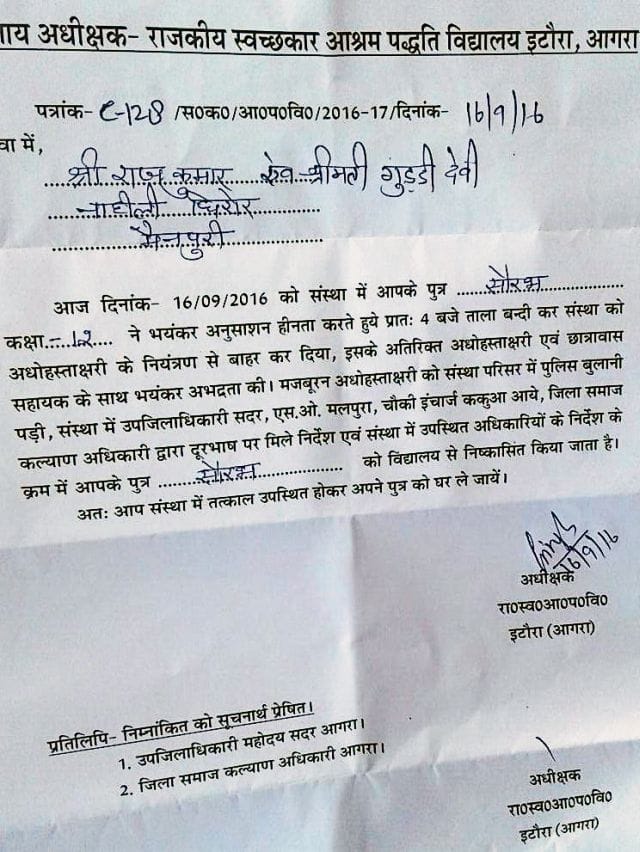 अधीक्षक- राजकीय स्वच्छकार आश्रम पद्धति विद्यालय इटौरा, आगरा
पत्रांक- C-128 /स०क०/आ०प०वि०/2016-17/दिनांक- 16/9/16
वा में,
श्री राजकुमार एंव श्रीमती गुड्डी देवी
मैनपुरी
आज दिनांक- 16/09/2016 को संस्था में आपके पुत्र ........सौरभ................
कक्षा.-..12.... ने भयंकर अनुसाशन हीनता करते हुये प्रातः 4 बजे ताला बन्दी कर संस्था को
अधोहस्ताक्षरी के नियंत्रण से बाहर कर दिया, इसके अतिरिक्त अधोहस्ताक्षरी एवं छात्रावास
सहायक के साथ भयंकर अभद्रता की। मजबूरन अधोहस्ताक्षरी को संस्था परिसर में पुलिस बुलानी
पड़ी, संस्था में उपजिलाधिकारी सदर, एस.ओ. मलपुरा, चौकी इंचार्ज ककुआ आये, जिला समाज
कल्याण अधिकारी द्वारा दूरभाष पर मिले निर्देश एवं संस्था में उपस्थित अधिकारियों के निर्देश के
क्रम में आपके पुत्र ........सौरभ................ को विद्यालय से निष्कासित किया जाता है।
अतः आप संस्था में तत्काल उपस्थित होकर अपने पुत्र को घर ले जायें।
16/9/16
अधीक्षक
रा०स्व०आ०प०वि०
इटौरा (आगरा)
प्रतिलिपि- निम्नांकित को सूचनार्थ प्रेषित।
1. उपजिलाधिकारी महोदय सदर आगरा।
2. जिला समाज कल्याण अधिकारी आगरा।
अधीक्षक
रा०स्व०आ०प०वि०
इटौरा (आगरा)